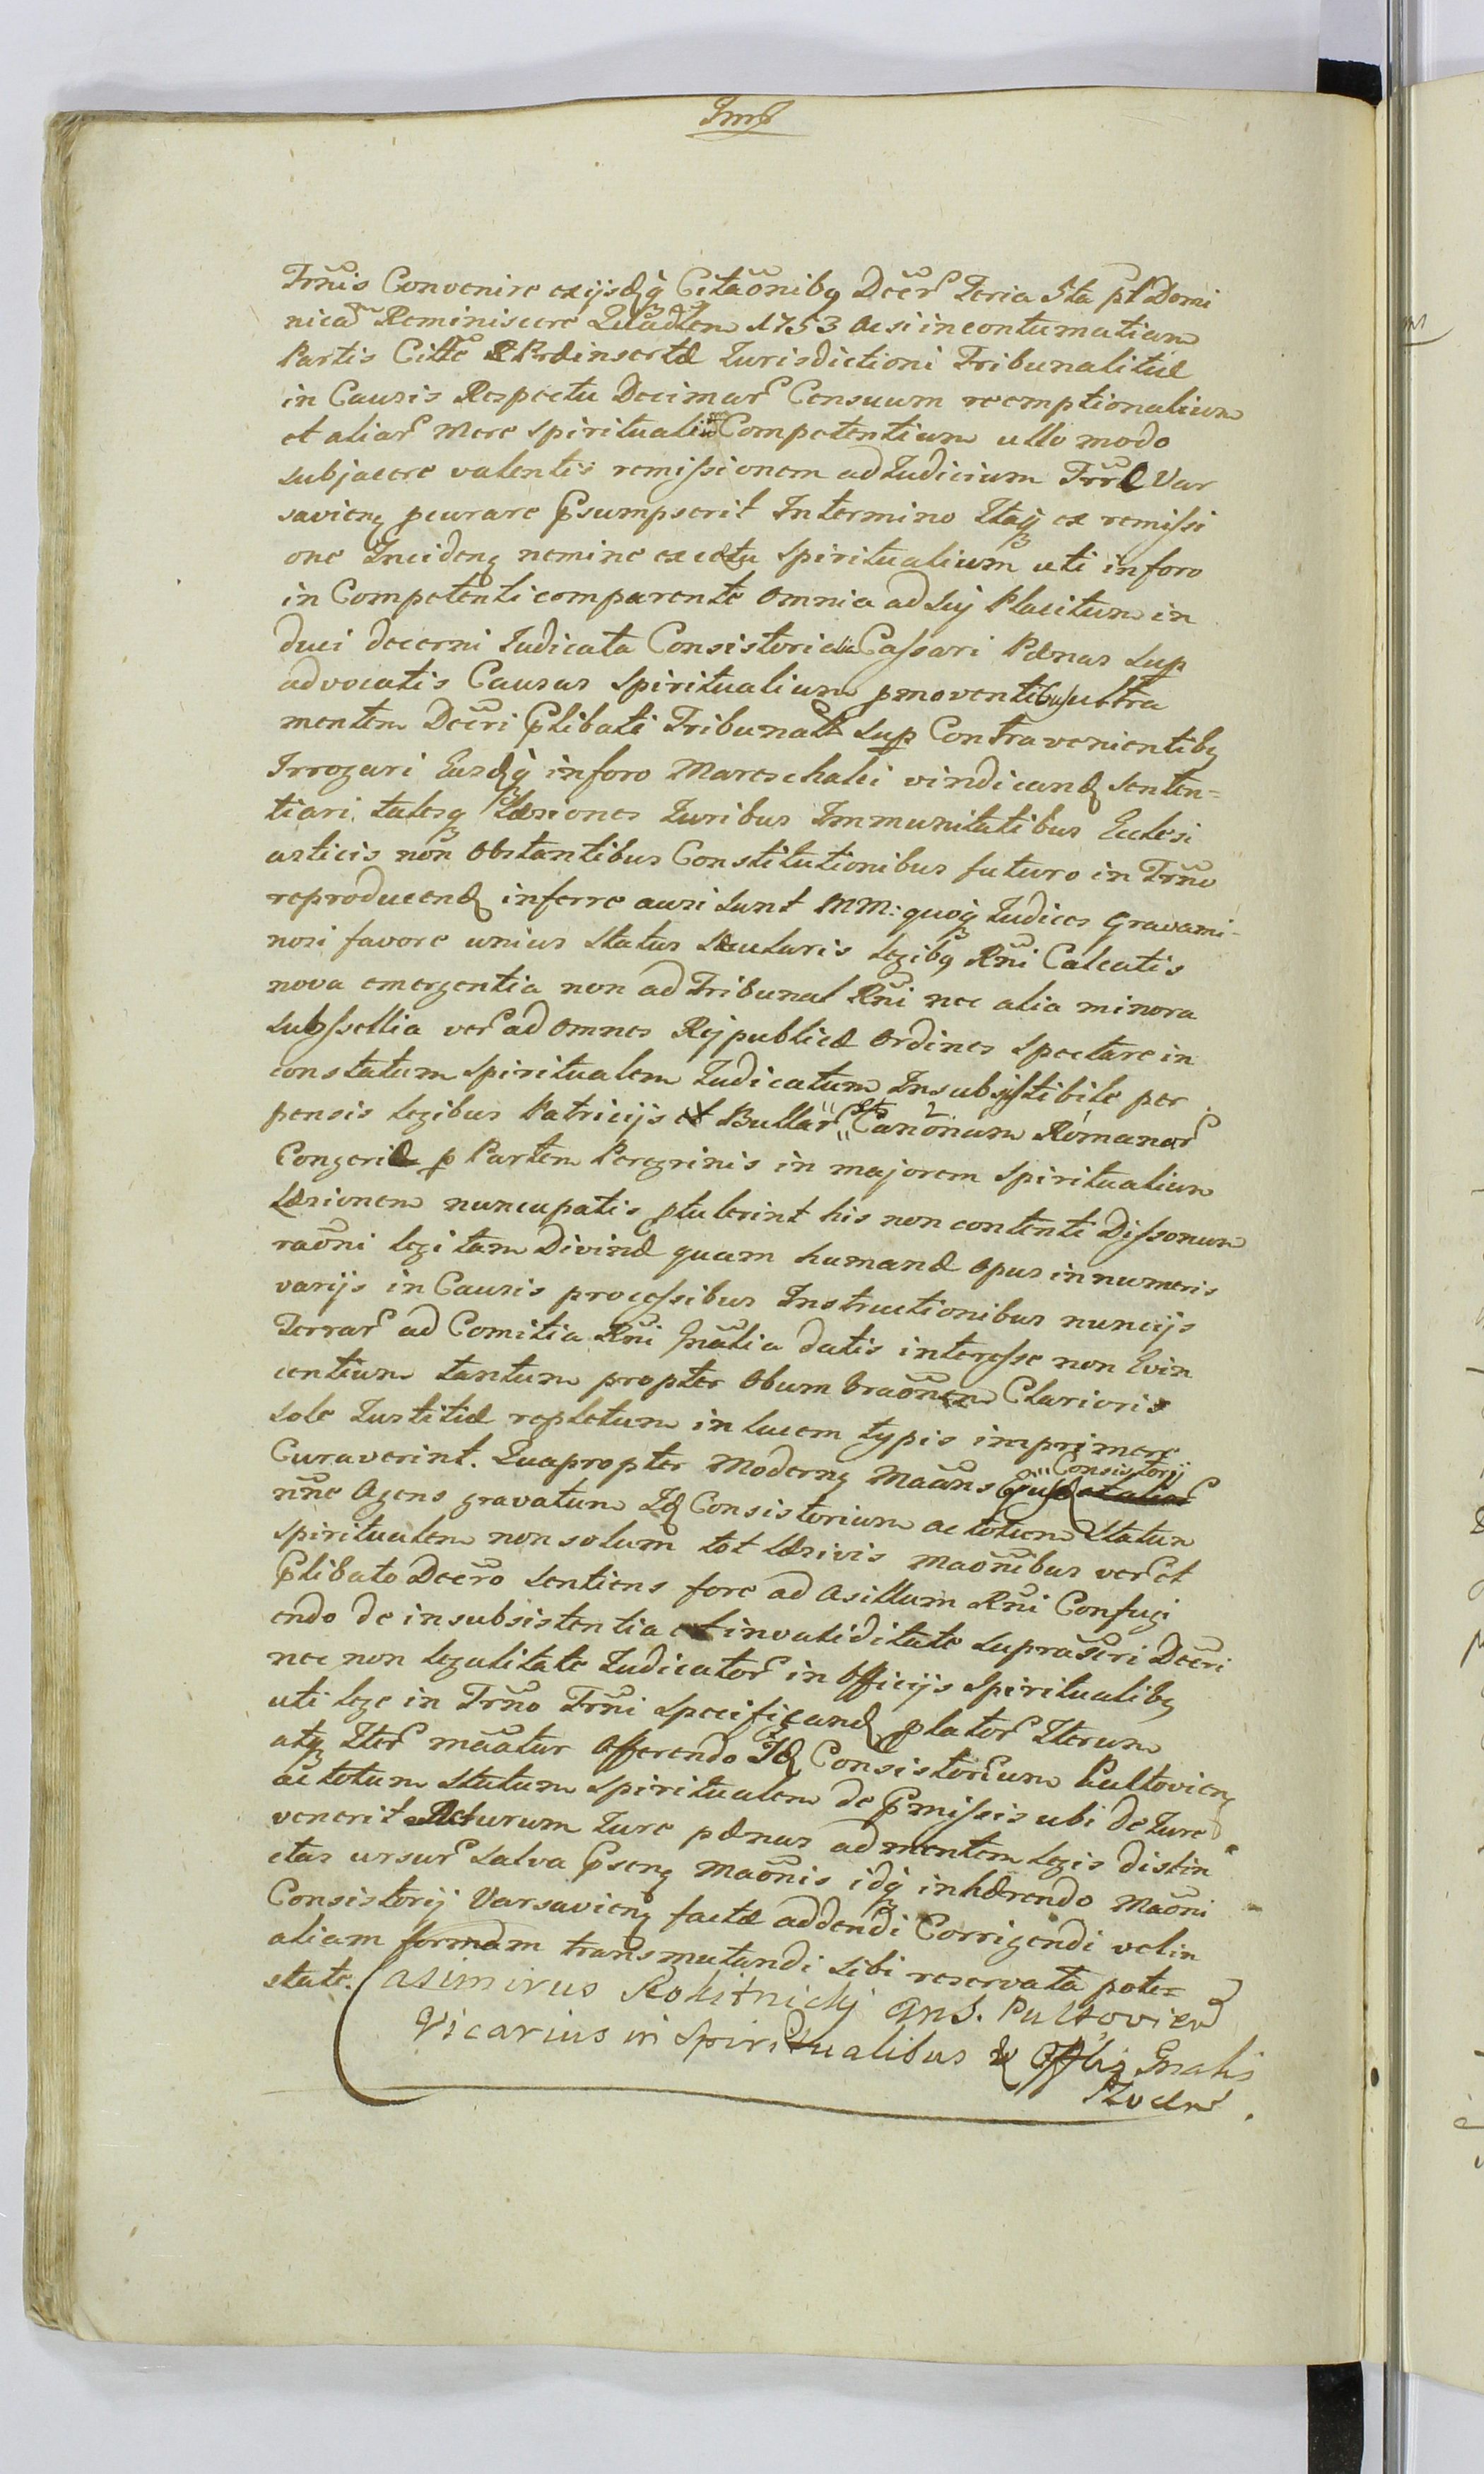 Trn̄is Convenire exijsdq̃ Citaōnibq Decr̄ Feria 5ta pt Domi
nicā Reminiscere Quadlem 1753 ac si in contumatiam
Partis Citt̄e Præinsertæ Jurisdictioni Tribunalitiæ
in Causis Respectu Decimar̃ Censuum reemptionalium
et aliar̃ mere spiritualiū Competentium ullo modo
subjacere valentis remissionem ad Judicium Trr̄æ Var
savienq pcurare Psumpserit In termino Itaq ex remissi
one Incidenq nemine ex cætu spiritualium uti in foro
in Competenti comparente omnia ad sui Placitum in
duci decerni Judicata Consistorialia Cassari Pænas sup
advocatis Causas spiritualium pmoventibus ultra
mentem Decr̄i Plibati Tribunalt sup Contravenientibq
Irrogari Easdq̃ in foro Mareschalci vindicand senten=
tiari talesq Læsiones Juribus Immunitatibus Ecclesi
asticis non Obstantibus Constitutionibus futuro in Trn̄o
reproducend inferre ausi sunt MM: quoq̃ Judices Gravami-
nosi favore unius status sæcularis legibq Rn̄i Calcatis
nova emergentia non ad Tribunal Rn̄i nec alia minora
subssellia ver̃ ad omnes Reijpublicæ Ordines spectare in
constatum spiritualem Judicatum Insubsistibile per
pensis legibus Patricijs et Bullar̃ et Canonum Romanar̃
Congeriæ p Partem Peregrinis in majorem spiritualium
Læsionem nuncupatis ptulerint his non contenti Dissonum
raōni legi tam Divinæ quam humanæ opus innumeris
varijs in Causis processibus Instructionibus nuncijs
Terrar̃ ad Comitia Rn̄i Gnālia datis interesse non Evin
centium tantum propter Obumbraōnem Clarioris
sole Justitiæ repletum in lucem typis imprimere
Curaverint. Quapropter Modernq Maāns Consistorij
nn̄e Agens gravatum Id Consistorium ac totum Statum
spiritualem non solum tot Læsivis maōnibus ver̃ et
Plibato Decr̄o sentiens fore ad Asillum Rn̄i Confugi
endo de insubsistentia et invaliditate suprascri Decr̄i
nec non legalitate Judicator̃ in Officijs spiritualibq
uti lege in Trn̄o Trn̄i specificand plator̃ Iterum
atq Iter̃ māatur Offerendo Id Consistorium Pultovienq
ac totum Statum spiritualem de Pmissis ubi de Jure
venerit Acturum Jure pænas ad mentem legis distin
ctas ursur̃ salva Psenq Maōnis idq̃ inhærendo Maōni
Consistorij Varsavienq factæ addendi Corrigendi vel in
aliam formam transmutandi sibi reservata pote=
state. Casimirus Rokitnicky Ans. Pultovien
Vicarius in Spiritualibus & Offlis Gnalis